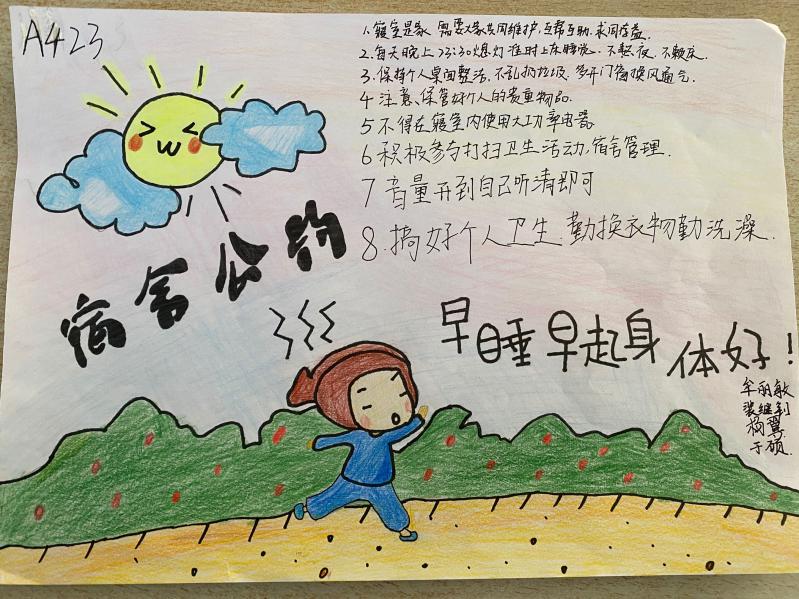 A423
1、寝室是家，需要大家共同维护，互帮互助，求同存益.
2、每天晚上23:30熄灯准时上床睡觉、不熬夜、不赖床.
3、保持个人桌面整洁，不乱扔垃圾，多开门窗换风通气.
4 注意、保管好个人的贵重物品.
5 不得在寝室内使用大功率电器
6 积极参与打扫卫生活动，宿舍管理.
7 音量开到自己听清即可
8.搞好个人卫生.勤换衣物勤洗澡.
宿舍公约
早睡早起身体好！
牟丽敏
杨翼
于硕